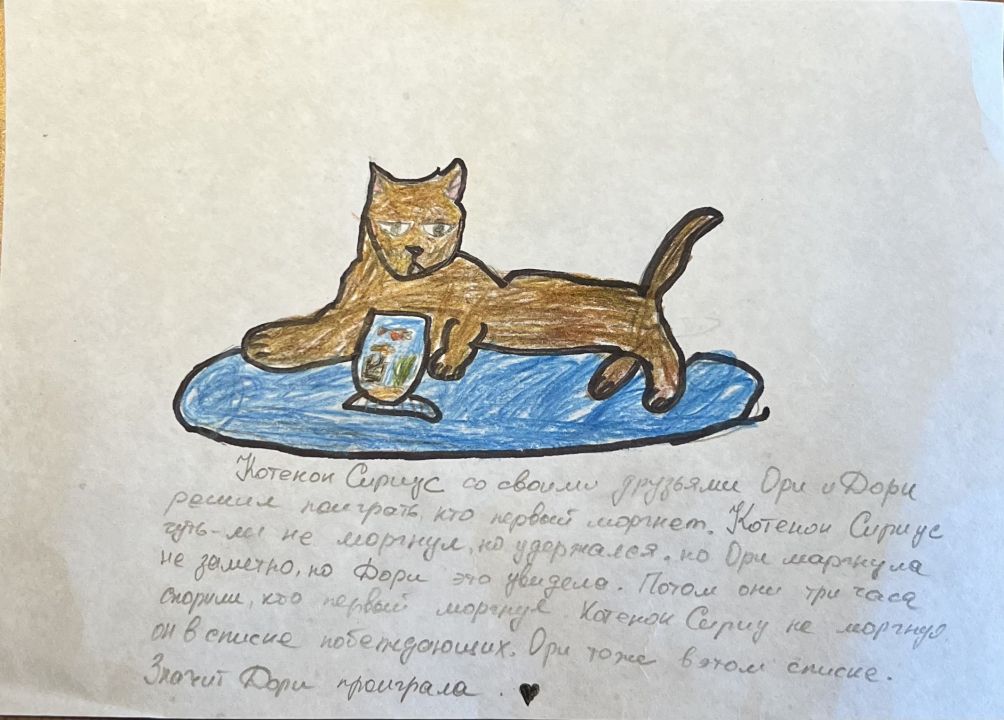 Котенок Сириус со своими друзьями Ори и Дори
решил поиграть, кто первый моргнет. Котенок Сириус
чуть-ли не моргнул, но удержался. но Ори маргнула
не заметно, но Дори это увидела. Потом они три часа
спорили, кто первый моргнул Котенок Сириу не моргнул
он в списке побеждающих. Ори тоже в этом списке.
Значит Дори проиграла.